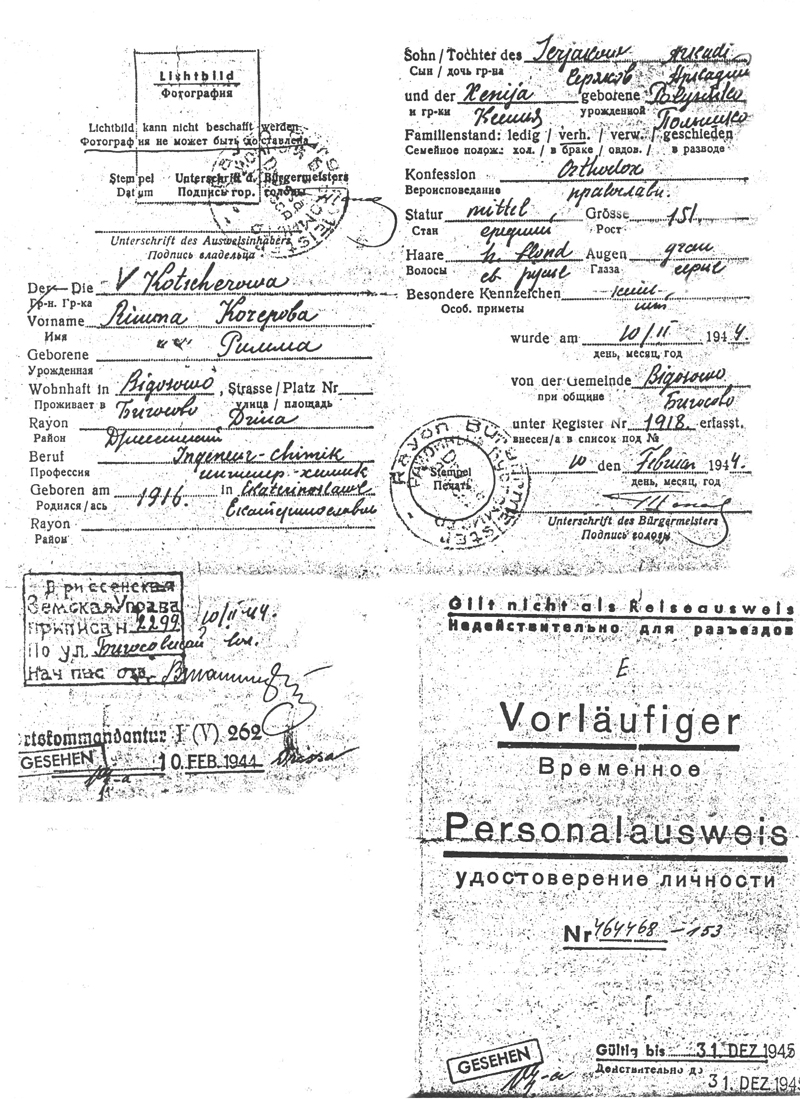 Lichtbild
Фотография
Lichtbild kann nicht beschafft werden
Фотография не может быть доставлена
Stempel Unterschrift d. Bürgermeisters
Datum Подпись гор. головы
Unterschrift des Ausweisinhabers
Подпись владельца
Der Die V Kotscherowa
Гр-н. Гр-ка
Vorname Rimma Кочерова
Имя Римма
Geborene
Урожденная
Wohnhaft in Bigosowo, Strasse / Platz Nr
Проживает в Бигосово улица / площадь
Rayon Drissa
Район Дриссенский
Beruf Ingeneur-chimik
Профессия инженер-химик
Geboren am 1916. in Ekaterinoslawl
Родился/ась Екатеринославль
Rayon
Район
Sohn / Tochter des Serjakow Arkadi
Сын / дочь гр-на Серяков Аркадии
und der Xenija geborene
и гр-ки Ксения урожденной
Familienstand: ledig / verh. / verw. / geschieden
Семейное полож: хол. / в браке / овдов. / в разводе
Konfession Orthodox
Вероисповедание православн.
Statur mittel, Grösse 151.
Стан средний Рост
Haare h. blond Augen grau
Волосы св. русые Глаза серые
Besondere Kennzeichen kein
Особ. приметы нет
wurde am 10/II 1944.
день, месяц, год
von der Gemeinde Bigosowo
при общине Бигосово
unter Register Nr 1918. erfasst.
внесен/а в список под №
Rayon Bürgermeister
Stempel
Печать
10 den Februar 1944.
день, месяц, год
Unterschrift des Bürgermeisters
Подпись головы
Дриссенская
Земская Управа
Приписан 2299 10/II 44.
По ул. Бигосовской вол.
Нач пас отд.
rtskommandantur I (V) 262
GESEHEN 10. FEB. 1944 Drissa
Gilt nicht als Reiseausweis
Недействительно для разъездов
E
Vorläufiger
Временное
Personalausweis
удостоверение личности
Nr 464468 - 153
GESEHEN
Gültig bis 31. DEZ 1945
Действительно до 31 DEZ 1945